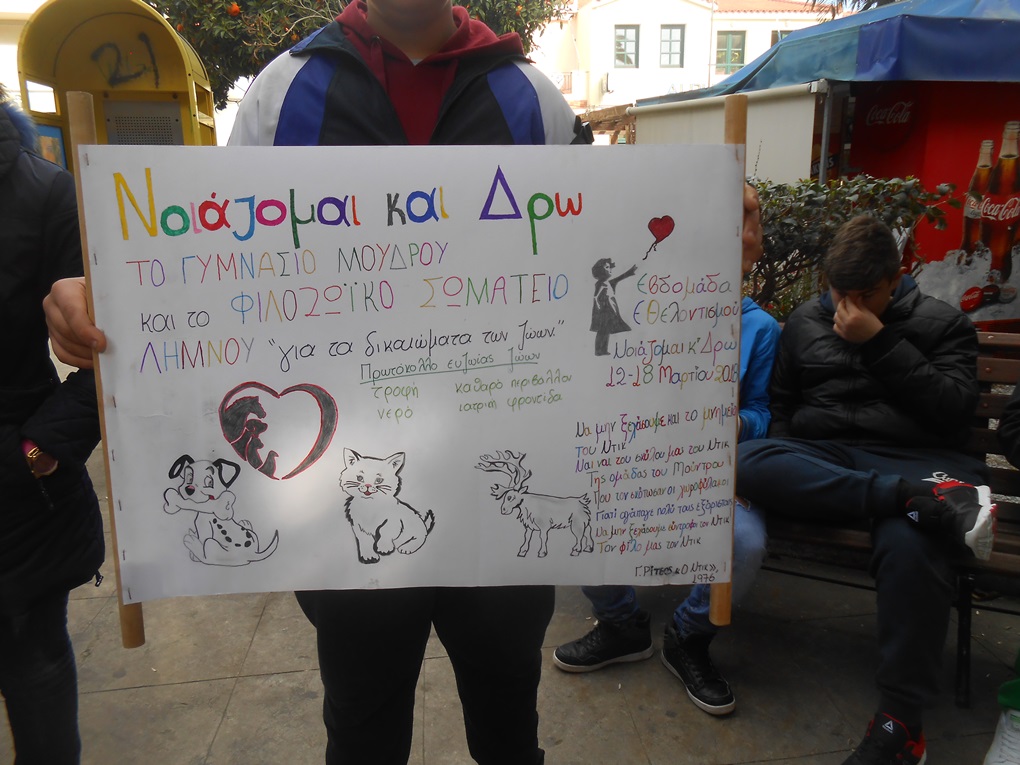 Νοιάζομαι και Δρω
ΤΟ ΓΥΜΝΑΣΙΟ ΜΟΥΔΡΟΥ
και το ΦΙΛΟΖΩΪΚΟ ΣΩΜΑΤΕΙΟ
ΛΗΜΝΟΥ "για τα δικαιώματα των ζώων."
Πρωτόκολλο ευζωίας ζώων
τροφή καθαρό περιβάλλον
νερό ιατρική φροντίδα
Εβδομάδα
Εθελοντισμού
Νοιάζομαι κ' Δρω
12-18 Μαρτίου 2018
Να μην ξεχάσουμε και το μνημείο
του Ντικ
Ναι ναι του σκύλου μας του Ντικ
Της ομάδας του Μούντρου
Που τον σκότωσαν οι χωροφύλακοι
Γιατί αγάπαγε πολύ τους εξόριστους
Να μην ξεχάσουμε σύντροφοι τον Ντικ
Τον φίλο μας τον Ντικ
Γ. ΡΙΤΣΟΣ «Ο Ντικ»,
1976
21
Coca-Cola
Coca-Cola